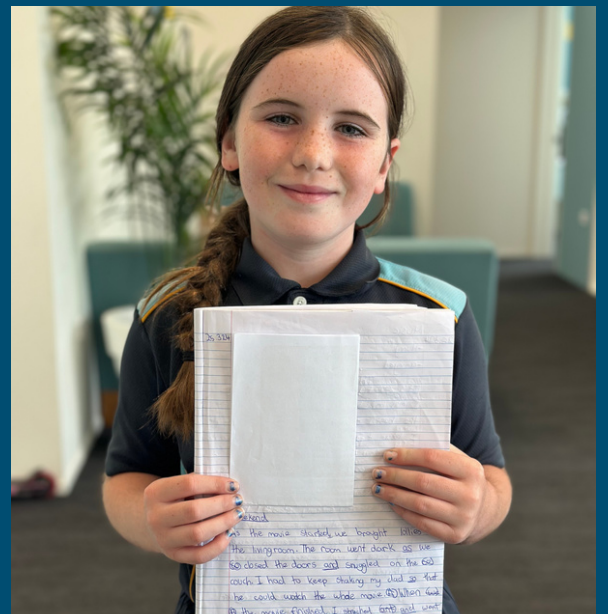 eekend
As the movie started, we brought
the livingroom. The room went dark as we
closed the doors and snuggled on the
couch. I had to keep shaking my dad so that
he could watch the whole movie. When
the movie finished, I stretched and